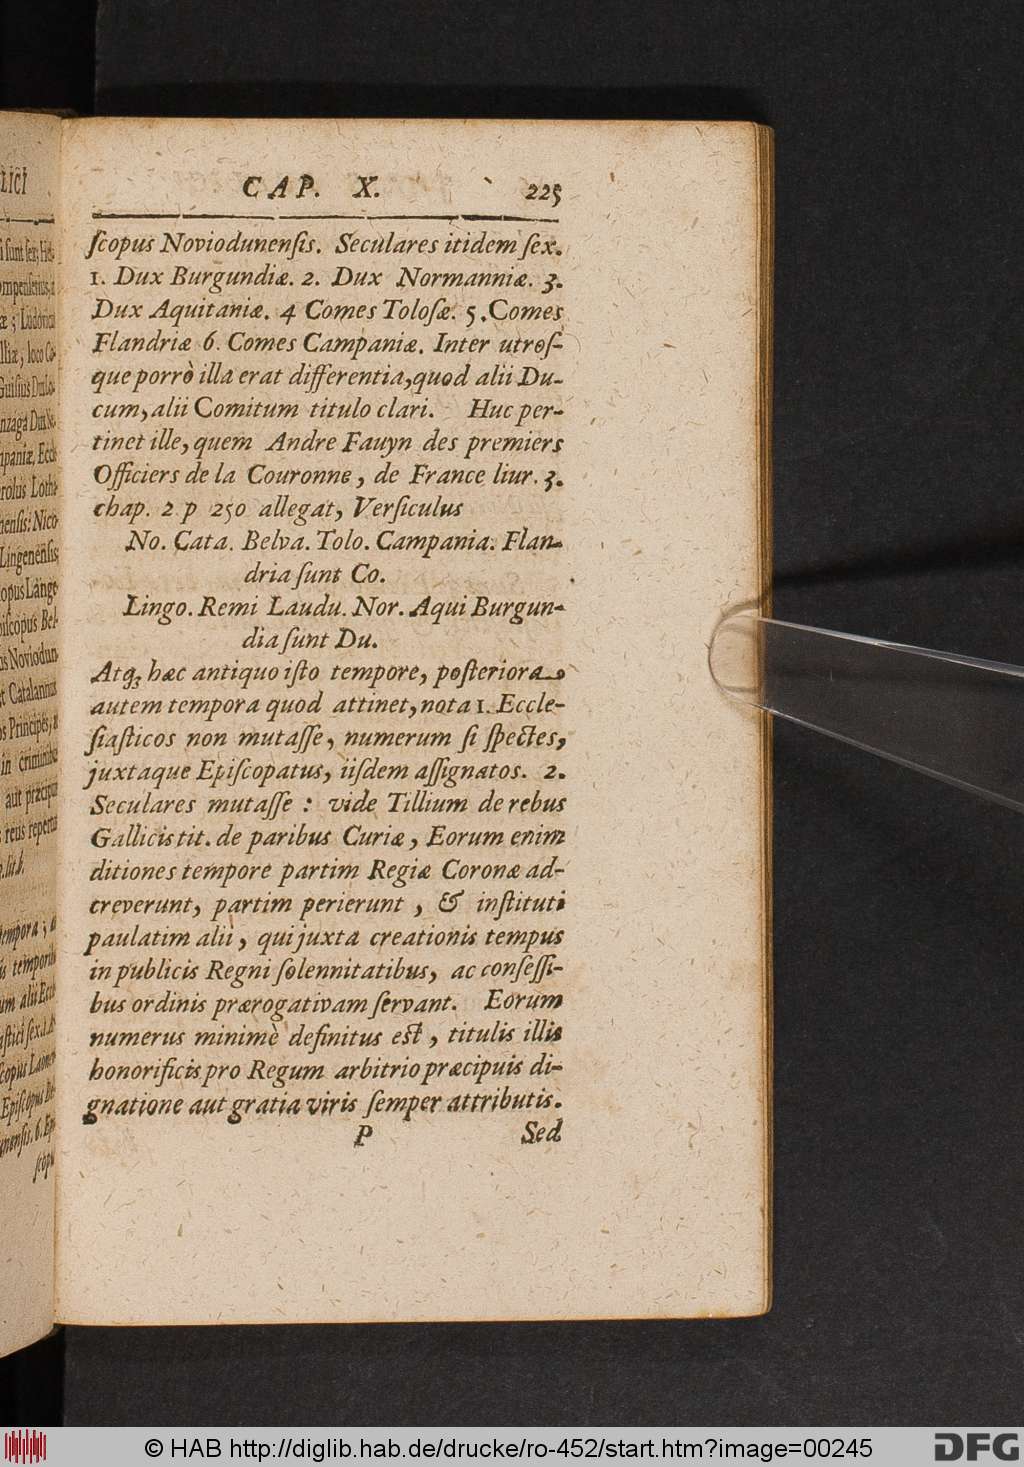 CAP. X. 225
ſcopus Noviodunenſis. Seculares itidem ſex.
1. Dux Burgundiæ. 2. Dux Normanniæ. 3.
Dux Aquitaniæ. 4 Comes Toloſæ. 5. Comes
Flandriæ 6. Comes Campaniæ. Inter utroſ-
que porrò illa erat differentia, quod alii Du-
cum, alii Comitum titulo clari. Huc per-
tinet ille, quem Andre Fauyn des premiers
Officiers de la Couronne, de France liur. 3.
chap. 2 p 250 allegat, Verſiculus
No. Cata. Belva. Tolo. Campania. Flan-
dria ſunt Co.
Lingo. Remi Laudu. Nor. Aqui Burgun-
dia ſunt Du.
Atq; hæc antiquo iſto tempore, poſteriora
autem tempora quod attinet, nota 1. Eccle-
ſiaſticos non mutaſſe, numerum ſi ſpectes,
juxtaque Epiſcopatus, iiſdem aſſignatos. 2.
Seculares mutaſſe : vide Tillium de rebus
Gallicis tit. de paribus Curiæ, Eorum enim
ditiones tempore partim Regiæ Coronæ ad-
creverunt, partim perierunt, & inſtituti
paulatim alii, qui juxta creationis tempus
in publicis Regni ſolennitatibus, ac conſeſſi-
bus ordinis prærogativam ſervant. Eorum
numerus minimè definitus eſt, titulis illis
honorificis pro Regum arbitrio præcipuis di-
gnatione aut gratia viris ſemper attributis.
P Sed
© HAB http://diglib.hab.de/drucke/ro-452/start.htm?image=00245
DFG